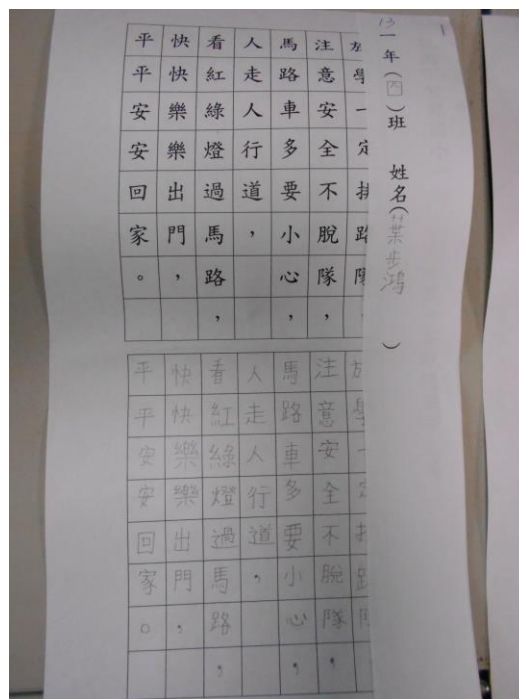 13
一年（四）班 姓名（葉步鴻）
學一定排路隊，
注意安全不脫隊，
馬路車多要小心，
人走人行道，
看紅綠燈過馬路，
快快樂樂出門，
平平安安回家。
學一定排路隊
注意安全不脫隊，
馬路車多要小心，
人走人行道，
看紅綠燈過馬路，
快快樂樂出門，
平平安安回家。